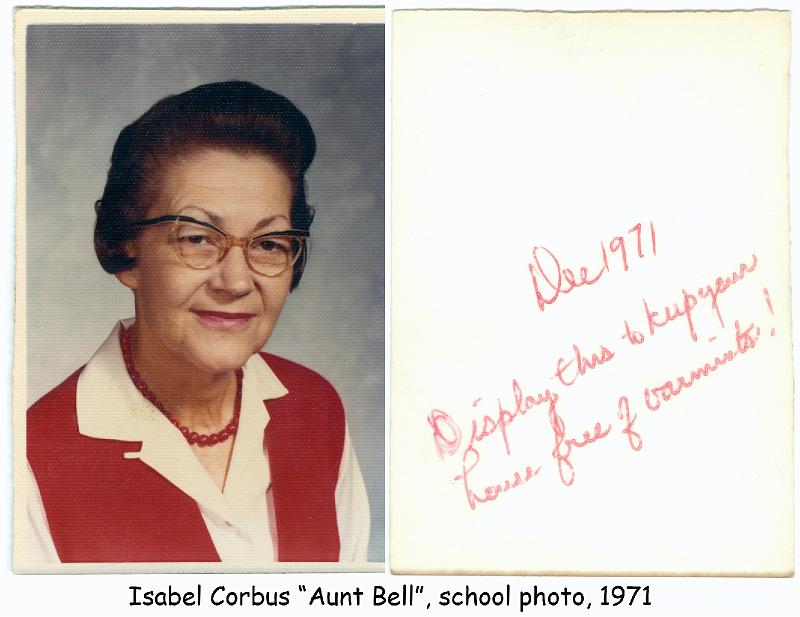 Dec 1971
Display this to keep your
house free of varmints!
Isabel Corbus “Aunt Bell”, school photo, 1971